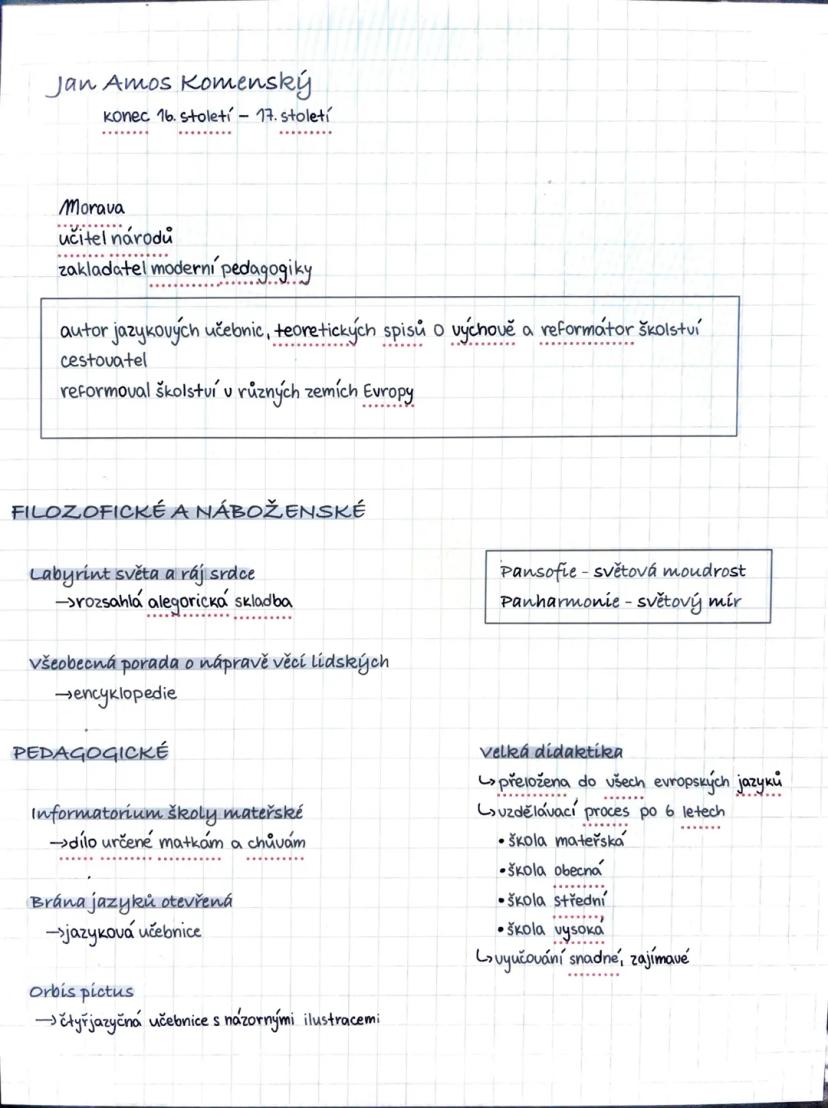 Jan Amos Komenský
konec 16. století – 17. století
Morava
učitel národů
zakladatel moderní pedagogiky
autor jazykových učebnic, teoretických spisů o výchově a reformátor školství
cestovatel
reformoval školství v různých zemích Evropy
FILOZOFICKÉ A NÁBOŽENSKÉ
Labyrint světa a ráj srdce
→rozsáhlá alegorická skladba
Pansofie - světová moudrost
Panharmonie - světový mír
Všeobecná porada o nápravě věcí lidských
→encyklopedie
PEDAGOGICKÉ
Informatorium školy mateřské
→dílo určené matkám a chůvám
Brána jazyků otevřená
→jazyková učebnice
Orbis pictus
→čtyřjazyčná učebnice s názornými ilustracemi
Velká didaktika
↳přeložena do všech evropských jazyků
↳vzdělávací proces po 6 letech
•škola mateřská
•škola obecná
•škola střední
•škola vysoká
↳vyučování snadné, zajímavé